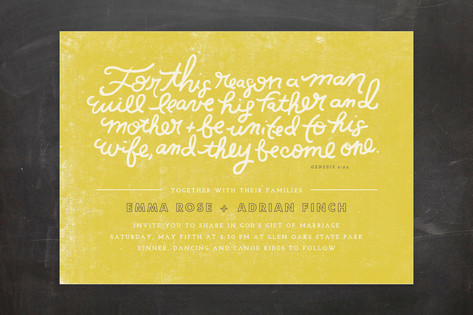 For this reason a man
will leave his father and
mother + be united to his
wife, and they become one.
GENESIS 2:24
TOGETHER WITH THEIR FAMILIES
EMMA ROSE + ADRIAN FINCH
INVITE YOU TO SHARE IN GOD'S GIFT OF MARRIAGE
SATURDAY, MAY FIFTH AT 6:30 PM AT GLEN OAKS STATE PARK
DINNER, DANCING AND CANOE RIDES TO FOLLOW